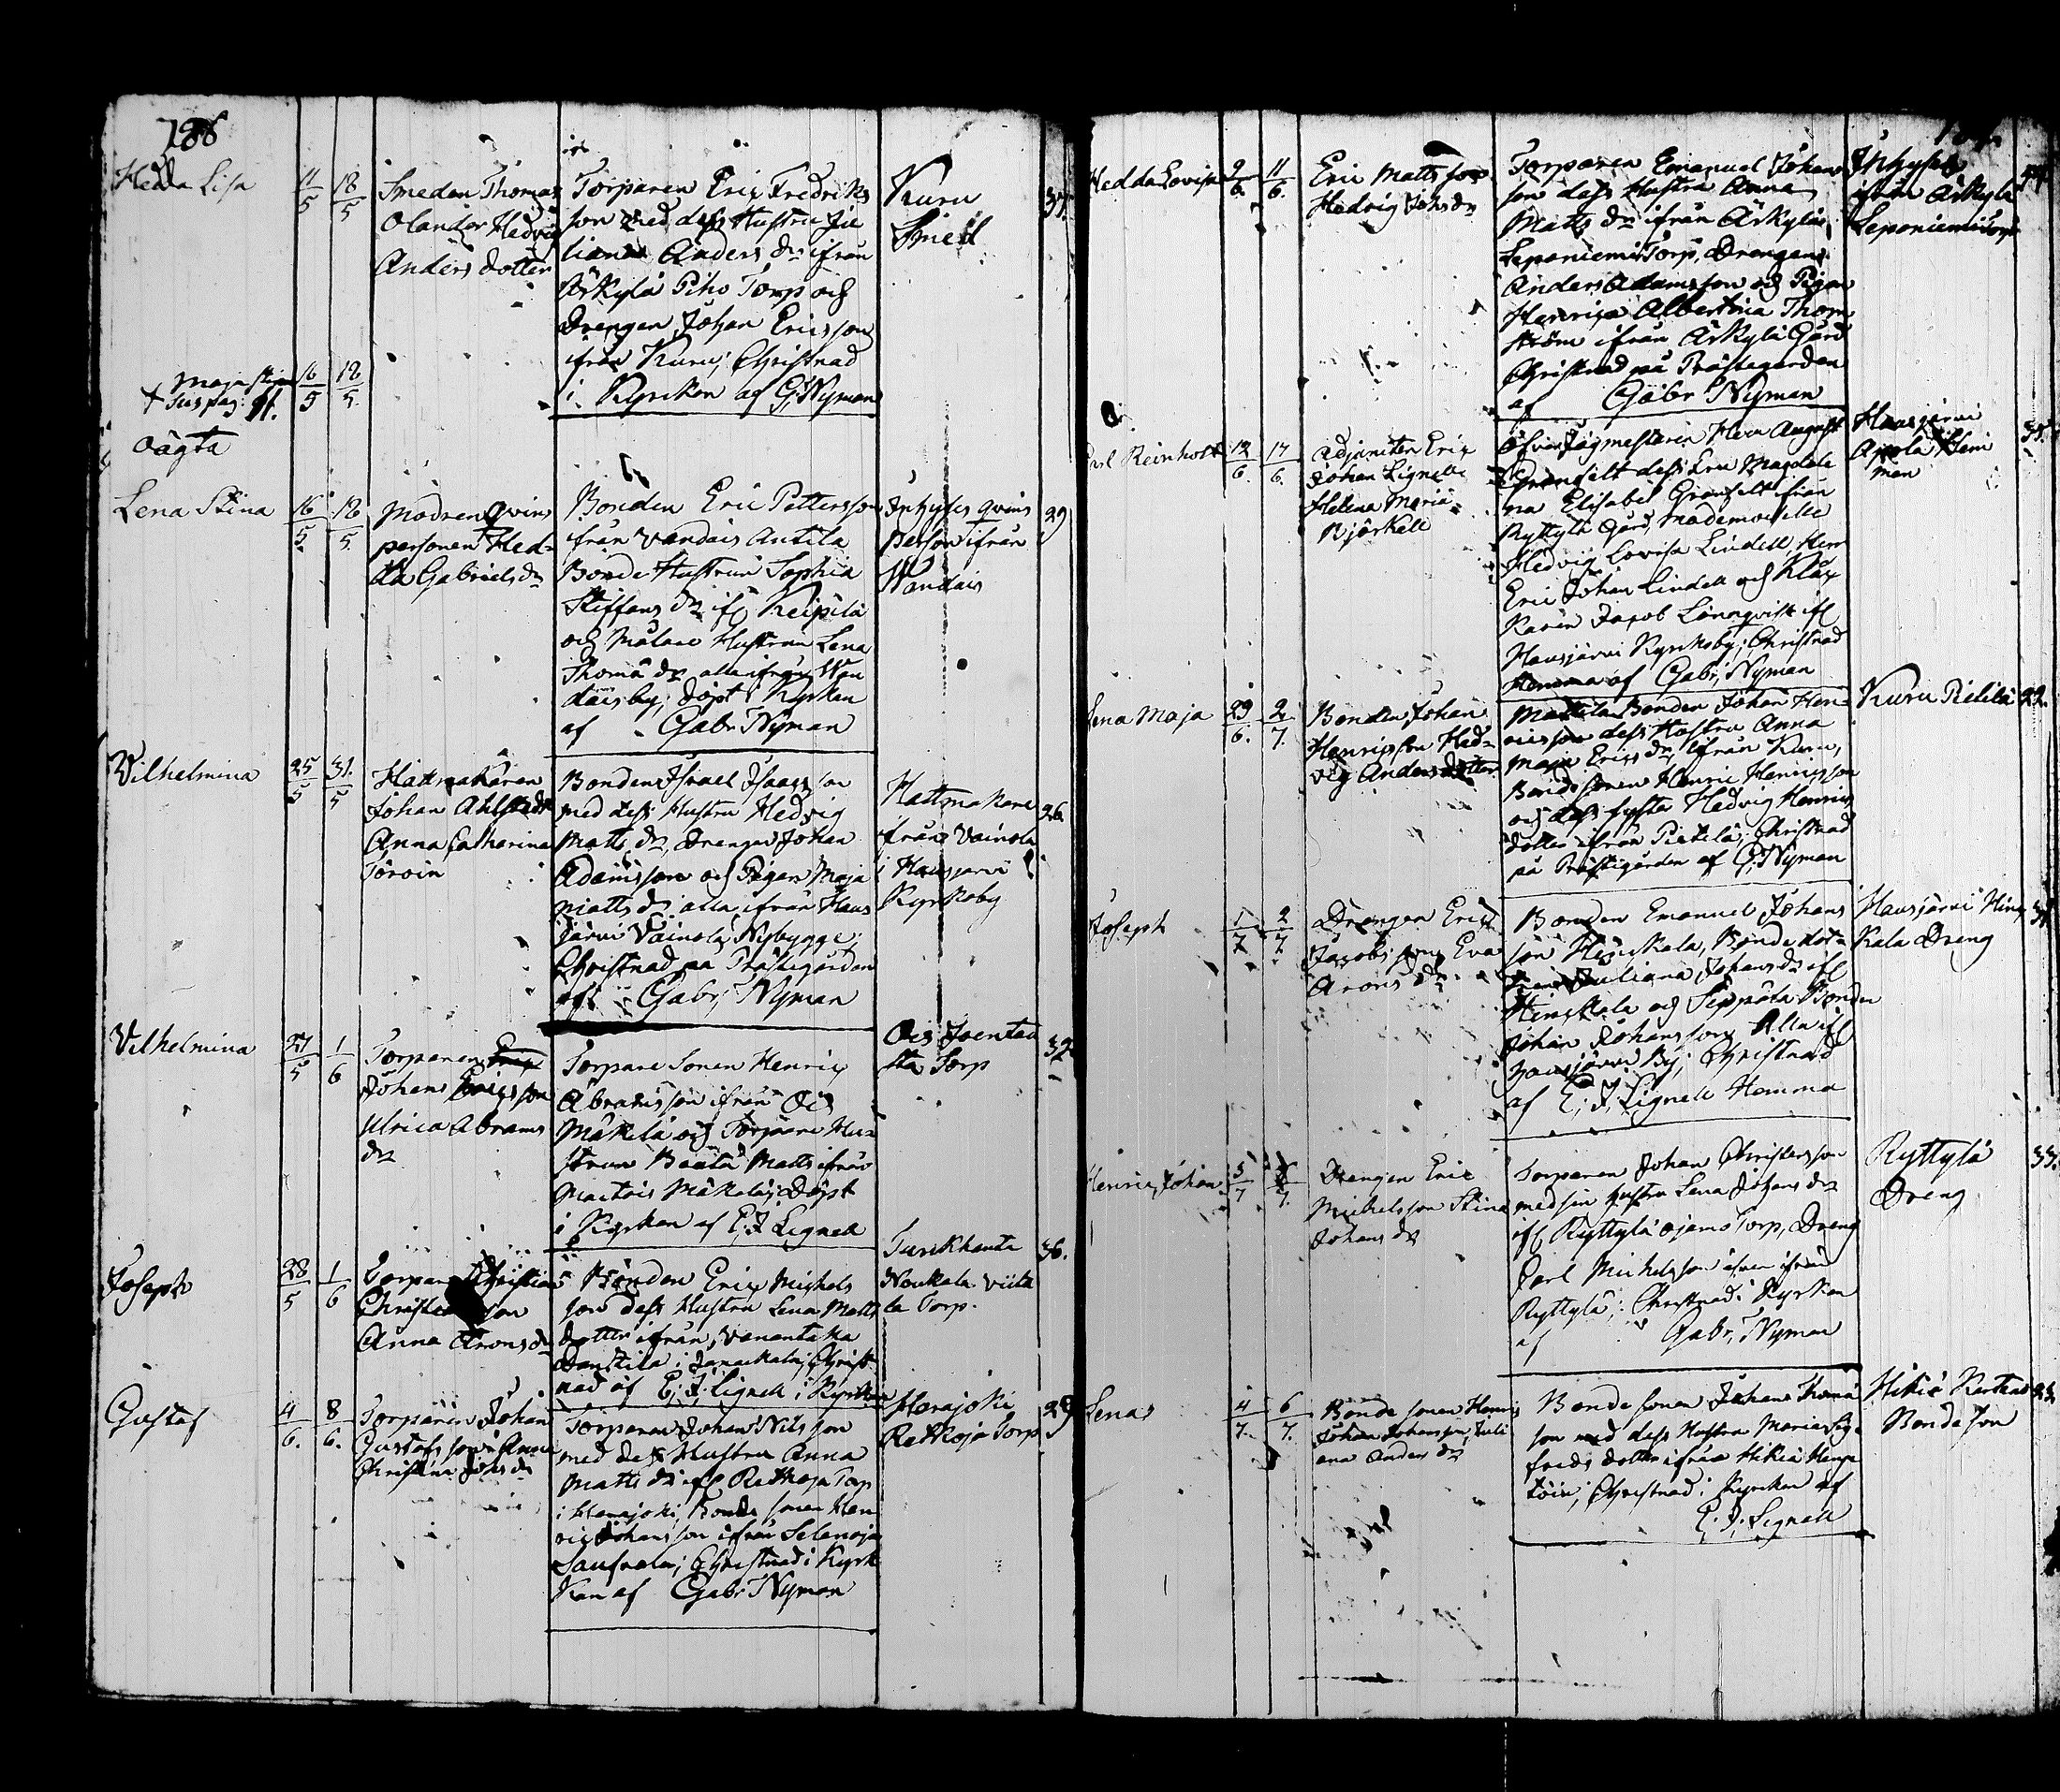 188
Hedda Lisa
11/5
18/5
Smeden Thomas
Olander Hedvig
Anders dotter
Torparen Eric Fredriks
son med dess Hustru Ju
liana Anders dr ifrån
Ärkylä Piho Torp och
Drengen Johan Ericsson
ifrån Kuru; Christnad
i Kyrkan af G; Nyman
Kuru
Smed
37.
Maja Stina
+ Sus pag: 91.
oägta
16/5
18/5.
Lena Stina
16/5.
18/5.
Modren Qvins
personen Hed-
da Gabriels dr
Bonden Eric Pettersson
ifrån Vandais Antila
Bonde Hustrun Sophia
Stiffans dr ifl Keipilä
och Målare Hustrun Lena
Thomæ dr alla ifrån Wan
daisby; döpt i Kyrkan
af Gabr Nyman
Inhyses qvins
Person ifrån
Wandais
29
Vilhelmina
25/5
31./5
Hattmakaren
Johan Ahlstedt
Anna Catharina
Töroin
Bonden Israel Isaacsson
med dess Hustru Hedvig
Matts dr, Drengen Johan
Adamsson och Pigan Maja
Matts dr alla ifrån Haus
järvi Vainola Nybygge;
Christnad på Prästegården
af Gabr; Nyman
Hattmakare
från Vainola
i Hausjärvi
Kyrkoby
26.
Vilhelmina
27/5
1/6
Torparen
Johans Ericsson
Ulrica Abrams
dr
Torpare Sonen Henric
Abramsson ifrån Ois
Mäkelä och Torpare Hu-
strun Beata Matts ifrån
Martois Mäkelä; Döpt
i Kyrkan af E; J Lignell
Ois Joentau
sta Torp
32
Joseph
28/5
1/6
Torparen Christian
Christiansson
Anna Arons dr
Bonden Eric Michels
son dess Hustru Lena Matts
dotter ifrån Vanantaka
Danskila i Janackala; Christ
nad af E; J; Lignell i Kyrkan
Turkhauta
Noukala Viita
la Torp.
36.
Gustaf
4/6.
8/6.
Torparen Johan
Gustafsson Anna
Christina Johs dr
Torparen Johan Nilsson
med dess Hustru Anna
Matts dr ifl Retkoja Torp
i Herajoki, Bonde sonen Hen
ric Johansson ifrån Selenoja
Saufvala; Christnad i Kyrk
kan af Gabr Nyman
Herajoki
Retkoja Torp
28
Hedda Lovisa
9/6.
11/6.
Eric Mattsson
Hedvig Johs dr
Torparen Emanuel Johans
son dess Hustru Anna
Matts dr ifrån Ärkylä
Leponiemi Torp, Drengen
Anders Adamsson och Pigan
Henrica Albertina Thom
ström ifrån Ärkylä Gård
Christnad på Prästegården
af Gabr Nyman
Inhyses
ifrån Ärkylä
Leponiemi Torp
Carl Reinholt
12/6.
17/6.
Adjuncten Eric
Johan Lignell
Helena Maria
Björkell
Öfver Jägmästaren Herr August
Granfelt dess Fru Magdale
na Elisabet Granfelt ifrån
Ryttylä Gård, Mademoiselle
Hedvig Lovisa Lindell, Herr
Eric Johan Lindell och Klåc
karen Jacob Lönnqvist ifl
Hausjärvi Kyrkoby; Christnad
Hemma af Gabr; Nyman
Hausjärvi
Apola Hem
man
35.
Lena Maja
29/6.
2/7.
Bonden Johan
Henricsson Hed-
vig Anders dotter
Mattila Bonden Johan Hen-
ricsson dess Hustru Anna
Maja Erics dr, ifrån Kuru,
Bondesonen Henric Henricsson
och dess syster Hedvig Henrics
dotter ifrån Pietilä; Christnad
på Prästegården af G; Nyman
Kuru Pietilä
22.
Joseph
1/7
2/7
Drengen Eric
Jacobsson Eva
Arons dr
Bonden Emanuel Johans
son Hinckala, Bonde dot-
tren Juliana Johans dr ifl
Hinckala och Seppälä Bonden
Johan Johansson Alla ifl
Hausjärvi By; Christnad
af E; J; Lignell Hemma
Hausjärvi Hinc
kala Dreng
Henric Johan
5/7
6/7.
Drengen Eric
Michelsson Stina
Johans dr
Torparen Johan Christersson
med sin hustru Lena Johans dr
ifl Ryttylä Ojamo Torp, Dreng
Carl Michelsson även ifrån
Ryttylä; Christnad i Kyrkan
af Gabr; Nyman
Ryttylä
Dreng
33.
Lena
4/7.
6/7.
Bonde sonen Henric
Johan Johansson, Juli
ana Anders dr
Bonde sonen Johan Thomæ
son med dess Hustru Maria Sig-
frids dotter ifrån Hikiä
töin; Christnad i Kyrkan af
E; J; Lignell
Hikiä
Bonde son
23.